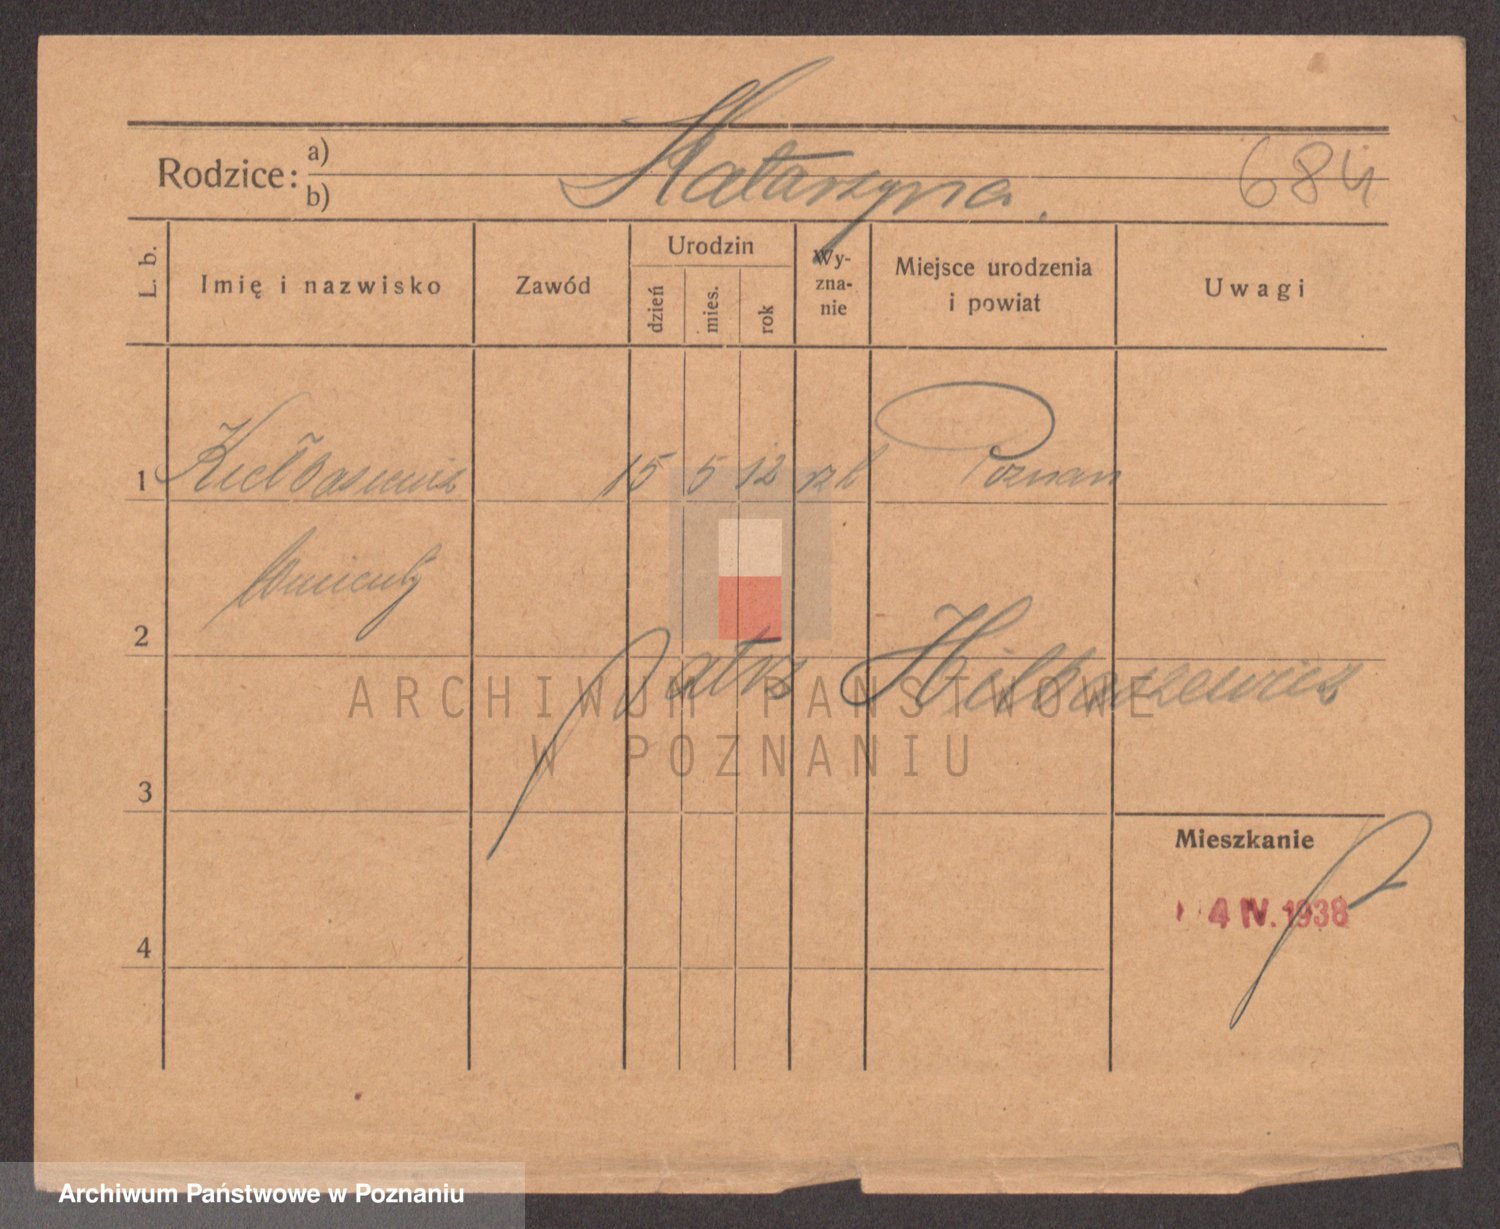 Rodzice:
a)
b)
Katarzyna.
684
L. b.
Imię i nazwisko
Zawód
Urodzin
dzień
mies.
rok
Wy-
zna-
nie
Miejsce urodzenia
i powiat
Uwagi
1 Kiełbasiewicz 15 5 12 rzk Poznań
2
patrz Kiełbasiewicz
ARCHIWUM PAŃSTWOWE
W POZNANIU
3
Mieszkanie
4 IV. 1938
4
Archiwum Państwowe w Poznaniu